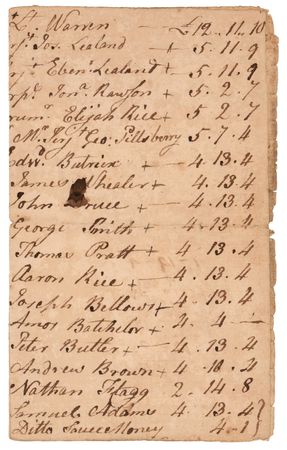 Lt. Warren - £12.11.10
Jos. Lealand + 5.11.9
Eben. Lealand + 5.11.9
Jona. Rawson + 5.2.7
Elijah Rice + 5.2.7
Geo. Pillsberry 5.7.4
Butrick - 4.13.4
James Whealer + 4.13.4
John + 4.13.4
George Smith + 4.13.4
Thomas Pratt + 4.13.4
Aaron Rice + 4.13.4
Joseph Bellows + 4.13.4
Amos Batchelor + 4.4 —
Peter Butler - 4.13.4
Andrew Brown + 4.10.4
Nathan Flagg 2.14.8
Samuel Adams 4.13.4
Ditto Sauce Money 4.1